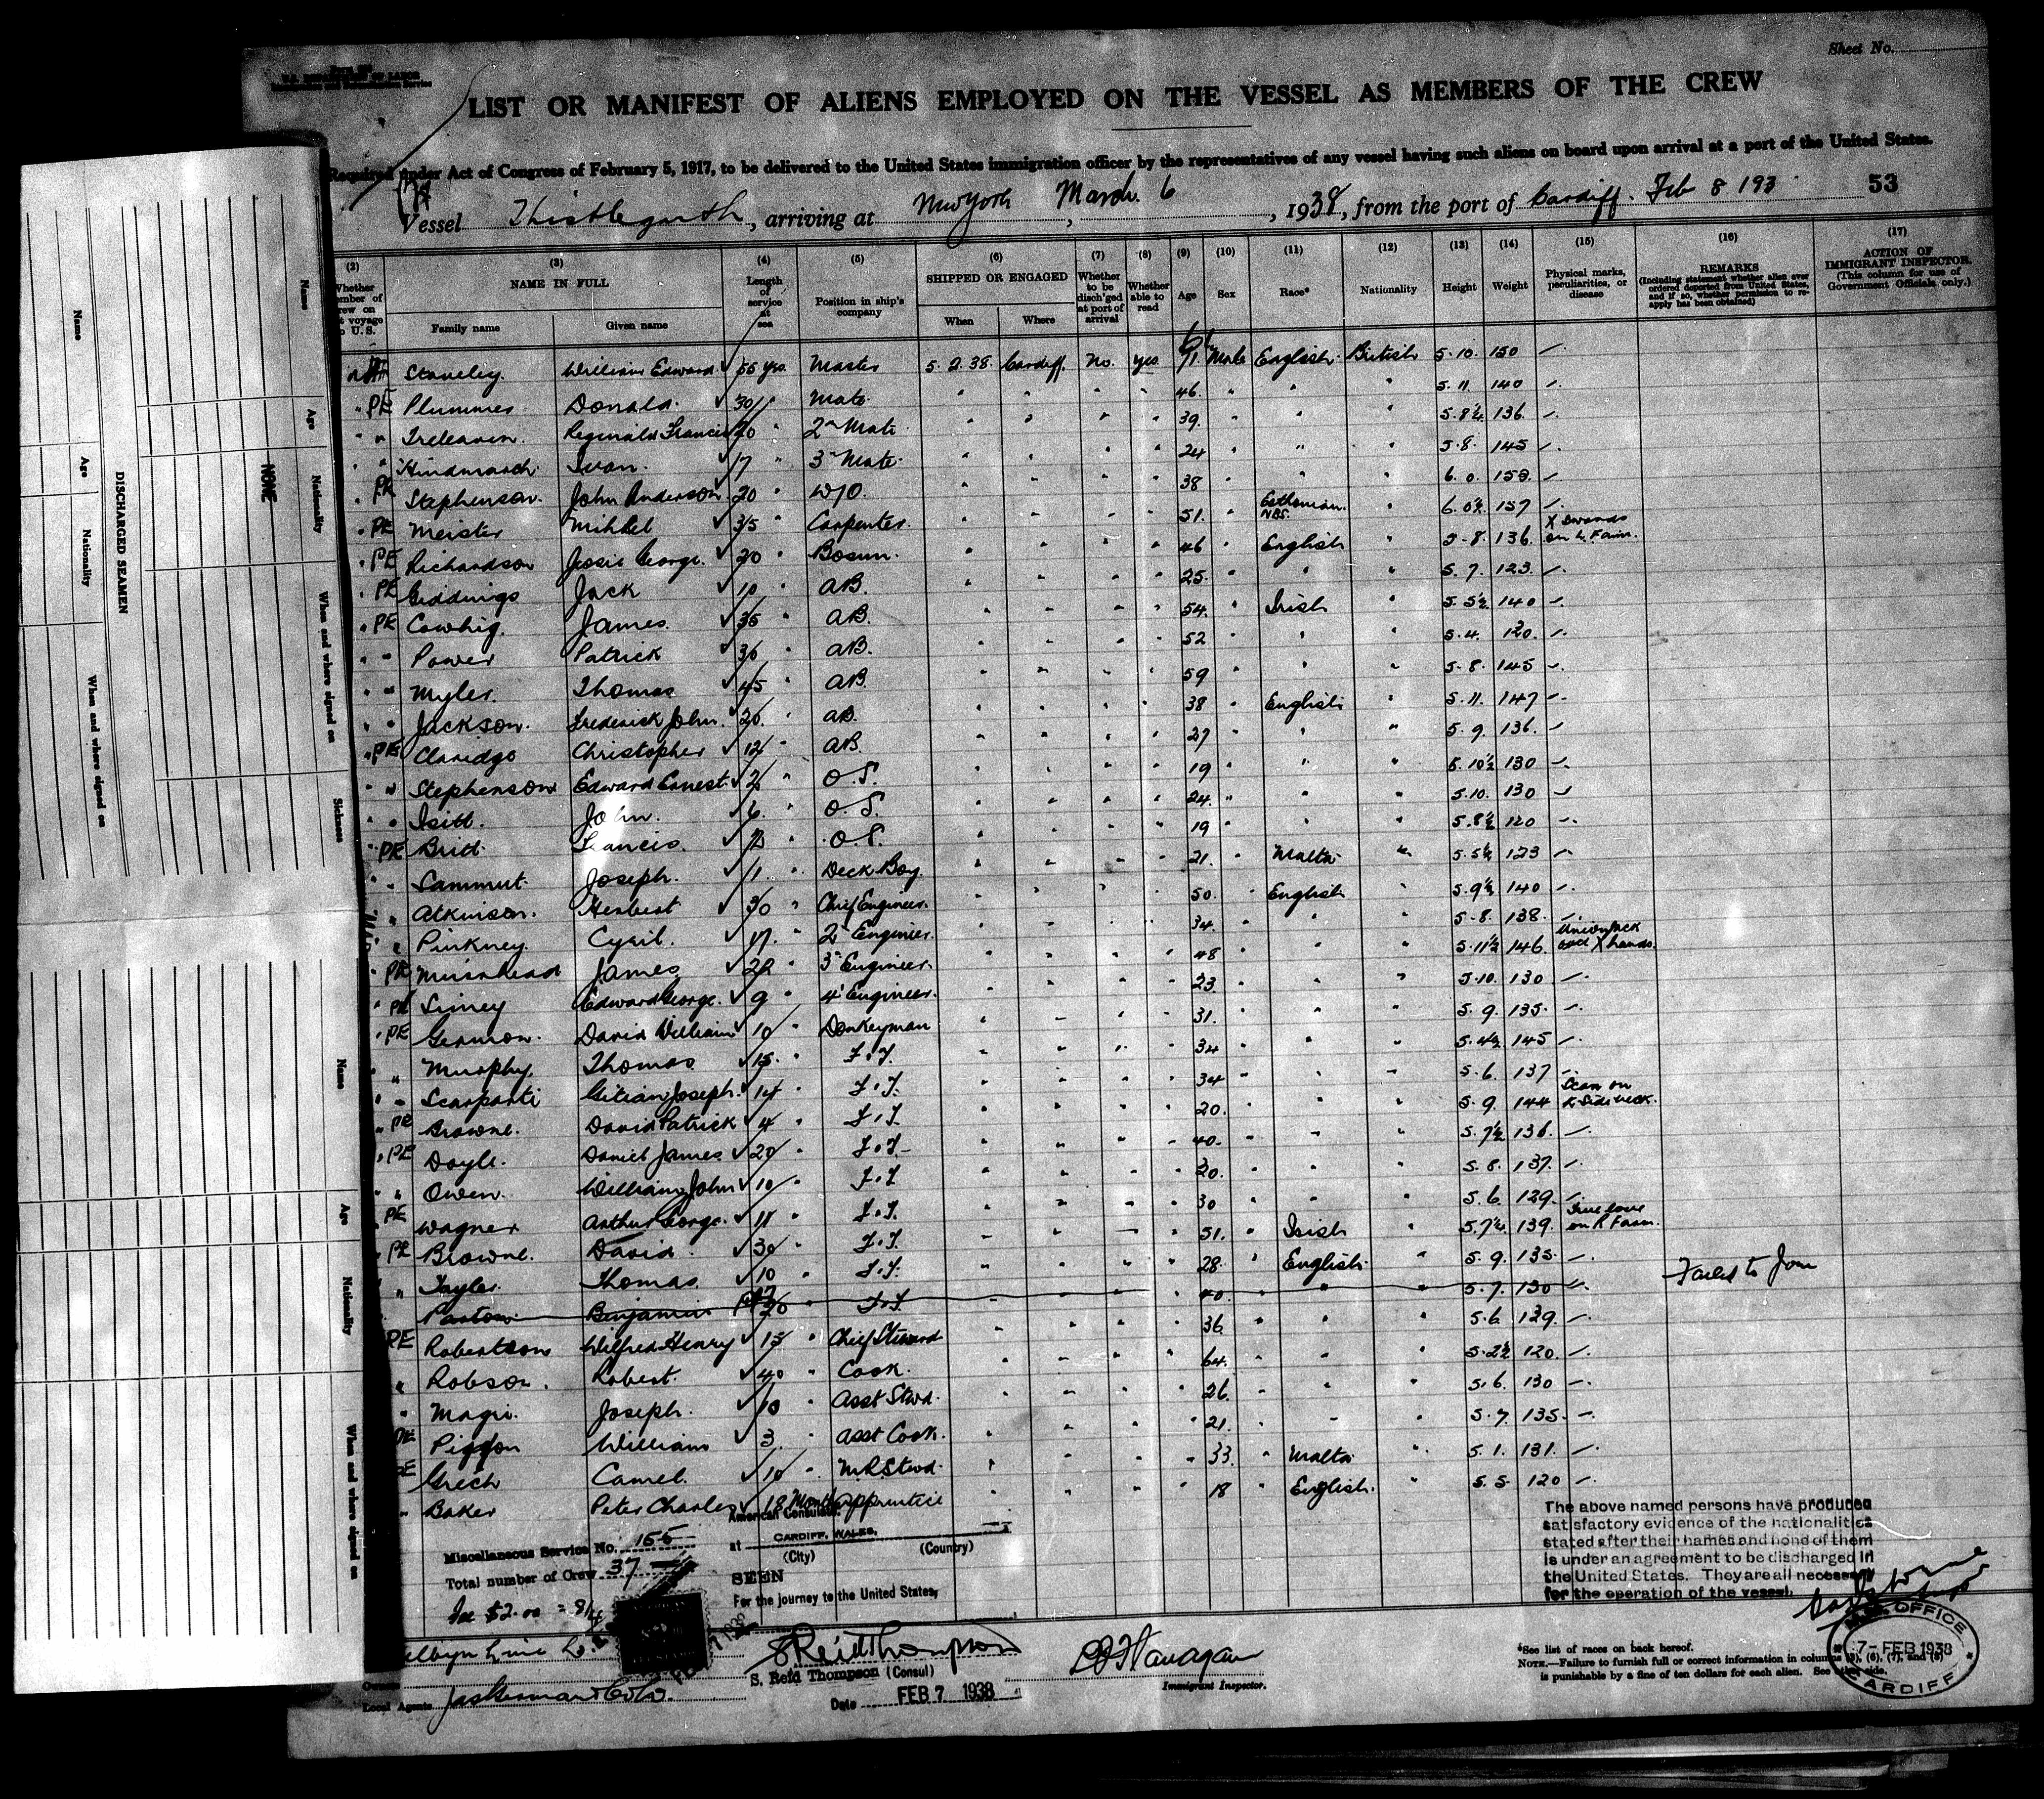 Sheet No.
U.S. DEPARTMENT OF LABOR
Immigration and Naturalization Service
LIST OR MANIFEST OF ALIENS EMPLOYED ON THE VESSEL AS MEMBERS OF THE CREW
Required under Act of Congress of February 5, 1917, to be delivered to the United States immigration officer by the representatives of any vessel having such aliens on board upon arrival at a port of the United States.
Vessel Thistlegarth, arriving at New York, March 6, 1938, from the port of Cardiff. Feb 8 193 53
(2) (3) (4) (5) (6) (7) (8) (9) (10) (11) (12) (13) (14) (15) (16) (17)
NAME IN FULL Length of service at sea Position in ship's company SHIPPED OR ENGAGED Whether to be disch'ged at port of arrival Whether able to read Age Sex Race* Nationality Height Weight Physical marks, peculiarities, or disease REMARKS (Including statement whether alien ever ordered deported from United States, and if so, whether permission to re-apply has been obtained) ACTION OF IMMIGRANT INSPECTOR. (This column for use of Government Officials only.)
Family name Given name When Where
Staveley. William Edward. 55 yrs. Master 5.2.38. Cardiff. No. yes. 71 Male English British 5.10. 150 -
" PE Plummer Donald. 30 " Mate. " " " " 46. " " " 5.11. 140 -
" " Treleaven. Reginald Francis 20 " 2nd Mate " " " " 39. " " " 5.8½ 136. -
" " Hindmarch. Ivan. 17 " 3rd Mate. " " " " 24 " " " 5.8. 145 -
" PE Stephenson. John Anderson 20 " W/O. " " " " 38 " " " 6.0. 158. -
" PE Meister Mihkel 35 " Carpenter. " " " " 51. " Esthonian. NBS. " 6.0½ 157 -
" PE Richardson Jessie George. 20 " Bosun. " " " " 46 " English " 5.8. 136. X Swords on L. Farm.
" PE Giddings Jack 10 " AB. " " " " 25. " " " 5.7. 123. -
" PE Cowhig. James. 35 " AB. " " " " 54. " Irish " 5.5½ 140 -
" " Power Patrick 36 " AB. " " " " 52 " " " 5.4. 120. -
" " Myler. Thomas 45 " AB. " " " " 59 " " " 5.8. 145 -
" " Jackson. Frederick John. 20. " AB. " " " " 38 " English " 5.11. 147 -
" PE Claridge Christopher 12 " AB. " " " " 27 " " " 5.9. 136. -
" " Stephenson Edward Ernest. 2 " O.S. " " " " 19 " " " 5.10½ 130 -
" " Isitt. John. 6. " O.S. " " " " 24. " " " 5.10. 130 -
" PE Britt Francis. " O.S. " " " " 19 " " " 5.8½ 120 -
" " Sammut. Joseph. 1. " Deck Boy " " " " 21. " Malta. " 5.5½ 123 -
" Atkinson. Herbert 30 " Chief Engineer. " " " " 50. " English " 5.9½ 140 -
" Pinkney. Cyril. 17. " 2nd Engineer. " " " " 34. " " " 5.8. 138. -
" PE Muirhead James 22 " 3rd Engineer. " " " " 48 " " " 5.11½ 146. Union Jack and X hands.
" PE Siney Edward George. 9 " 4th Engineer. " " " " 23. " " " 5.10. 130 -
" PE Germon. David William 10 " Donkeyman " " " " 31. " " " 5.9. 135. -
" Murphy. Thomas 15. " F.T. " " " " 34 " " " 5.4½ 145 -
" " Scarparti Gitian Joseph. 14 " F.T. " " " " 34 " " " 5.6. 137 -
" PE Browne. David Patrick 4 " F.T. " " " " 20. " " " 5.9. 144 Scar on L Side neck.
" PE Doyle. Daniel James 20 " F.T. " " " " 40. " " " 5.7½ 136. -
" " Owen. William John 10 " F.T. " " " " 20. " " " 5.8. 137. -
PE Wagner Arthur George. 11 " F.T. " " " " 30 " " " 5.6. 129. -
" PE Browne. David. 30 " F.T. " " " " 51. " Irish " 5.7½ 139. True love on R Farm.
" Tayler. Thomas. 10 " F.T. " " " " 28. " English. " 5.9. 135. -
Parton Benjamin 20 " F.T. " " " " 40. " " " 5.7. 130 - Failed to Join
PE Robertson Wilfred Henry 15 " Chief Steward " " " " 36. " " " 5.6. 129. -
" Robson. Robert. 40 " Cook. " " " " 64. " " " 5.2½ 120. -
" Magri. Joseph. 10 " Asst Stwd. " " " " 26. " " " 5.6. 130 -
PE Piggon William 3. " Asst Cook. " " " " 21. " " " 5.7. 135. -
PE Grech Camel. 10 " M.R Stwd. " " " " 33. " Malta. " 5.1. 131. -
" Baker Peter Charles 18 Months Apprentice " " " " 18 " English. " 5.5. 120 -
Miscellaneous Service No. 155
Total number of Crew 37
Fee $2.00
American Consulate
at CARDIFF, WALES,
(City) (Country)
SEEN
For the journey to the United States,
S Reid Thompson
S. Reid Thompson (Consul)
Date FEB 7 1938
Immigrant Inspector.
The above named persons have produced
satisfactory evidence of the nationalities
stated after their names and none of them
is under an agreement to be discharged in
the United States. They are all necessary
for the operation of the vessel.
*See list of races on back hereof.
NOTE.—Failure to furnish full or correct information in columns (3), (6), (7), and (8)
is punishable by a fine of ten dollars for each alien. See other side.
OFFICE
7-FEB 1938
CARDIFF
Owners
Local Agents
DISCHARGED SEAMEN
Name Age Nationality When and where signed on
Name Age Nationality When and where signed on Sickness
NONE
Name Age Nationality When and where signed on